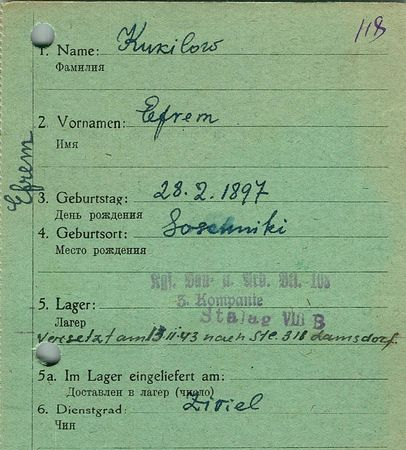 118
1. Name: Kukilow
Фамилия
2. Vornamen: Efrem
Имя
Efrem
3. Geburtstag: 28.2.1897
День рождения
4. Geburtsort: Soschniki
Место рождения
Kgl. Bau- u. Arb. Btl. 108
3. Kompanie
5. Lager: Stalag VIII B
Лагерь
Versetzt am 13.11.43 nach Ste. 318 Lamsdorf.
5a. Im Lager eingeliefert am:
Доставлен в лагерь (число)
6. Dienstgrad: Ziviel
Чин